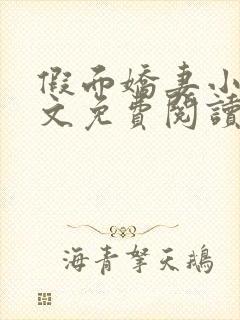 假面嬌妻小
文免費閱讀
海青拏天鵝